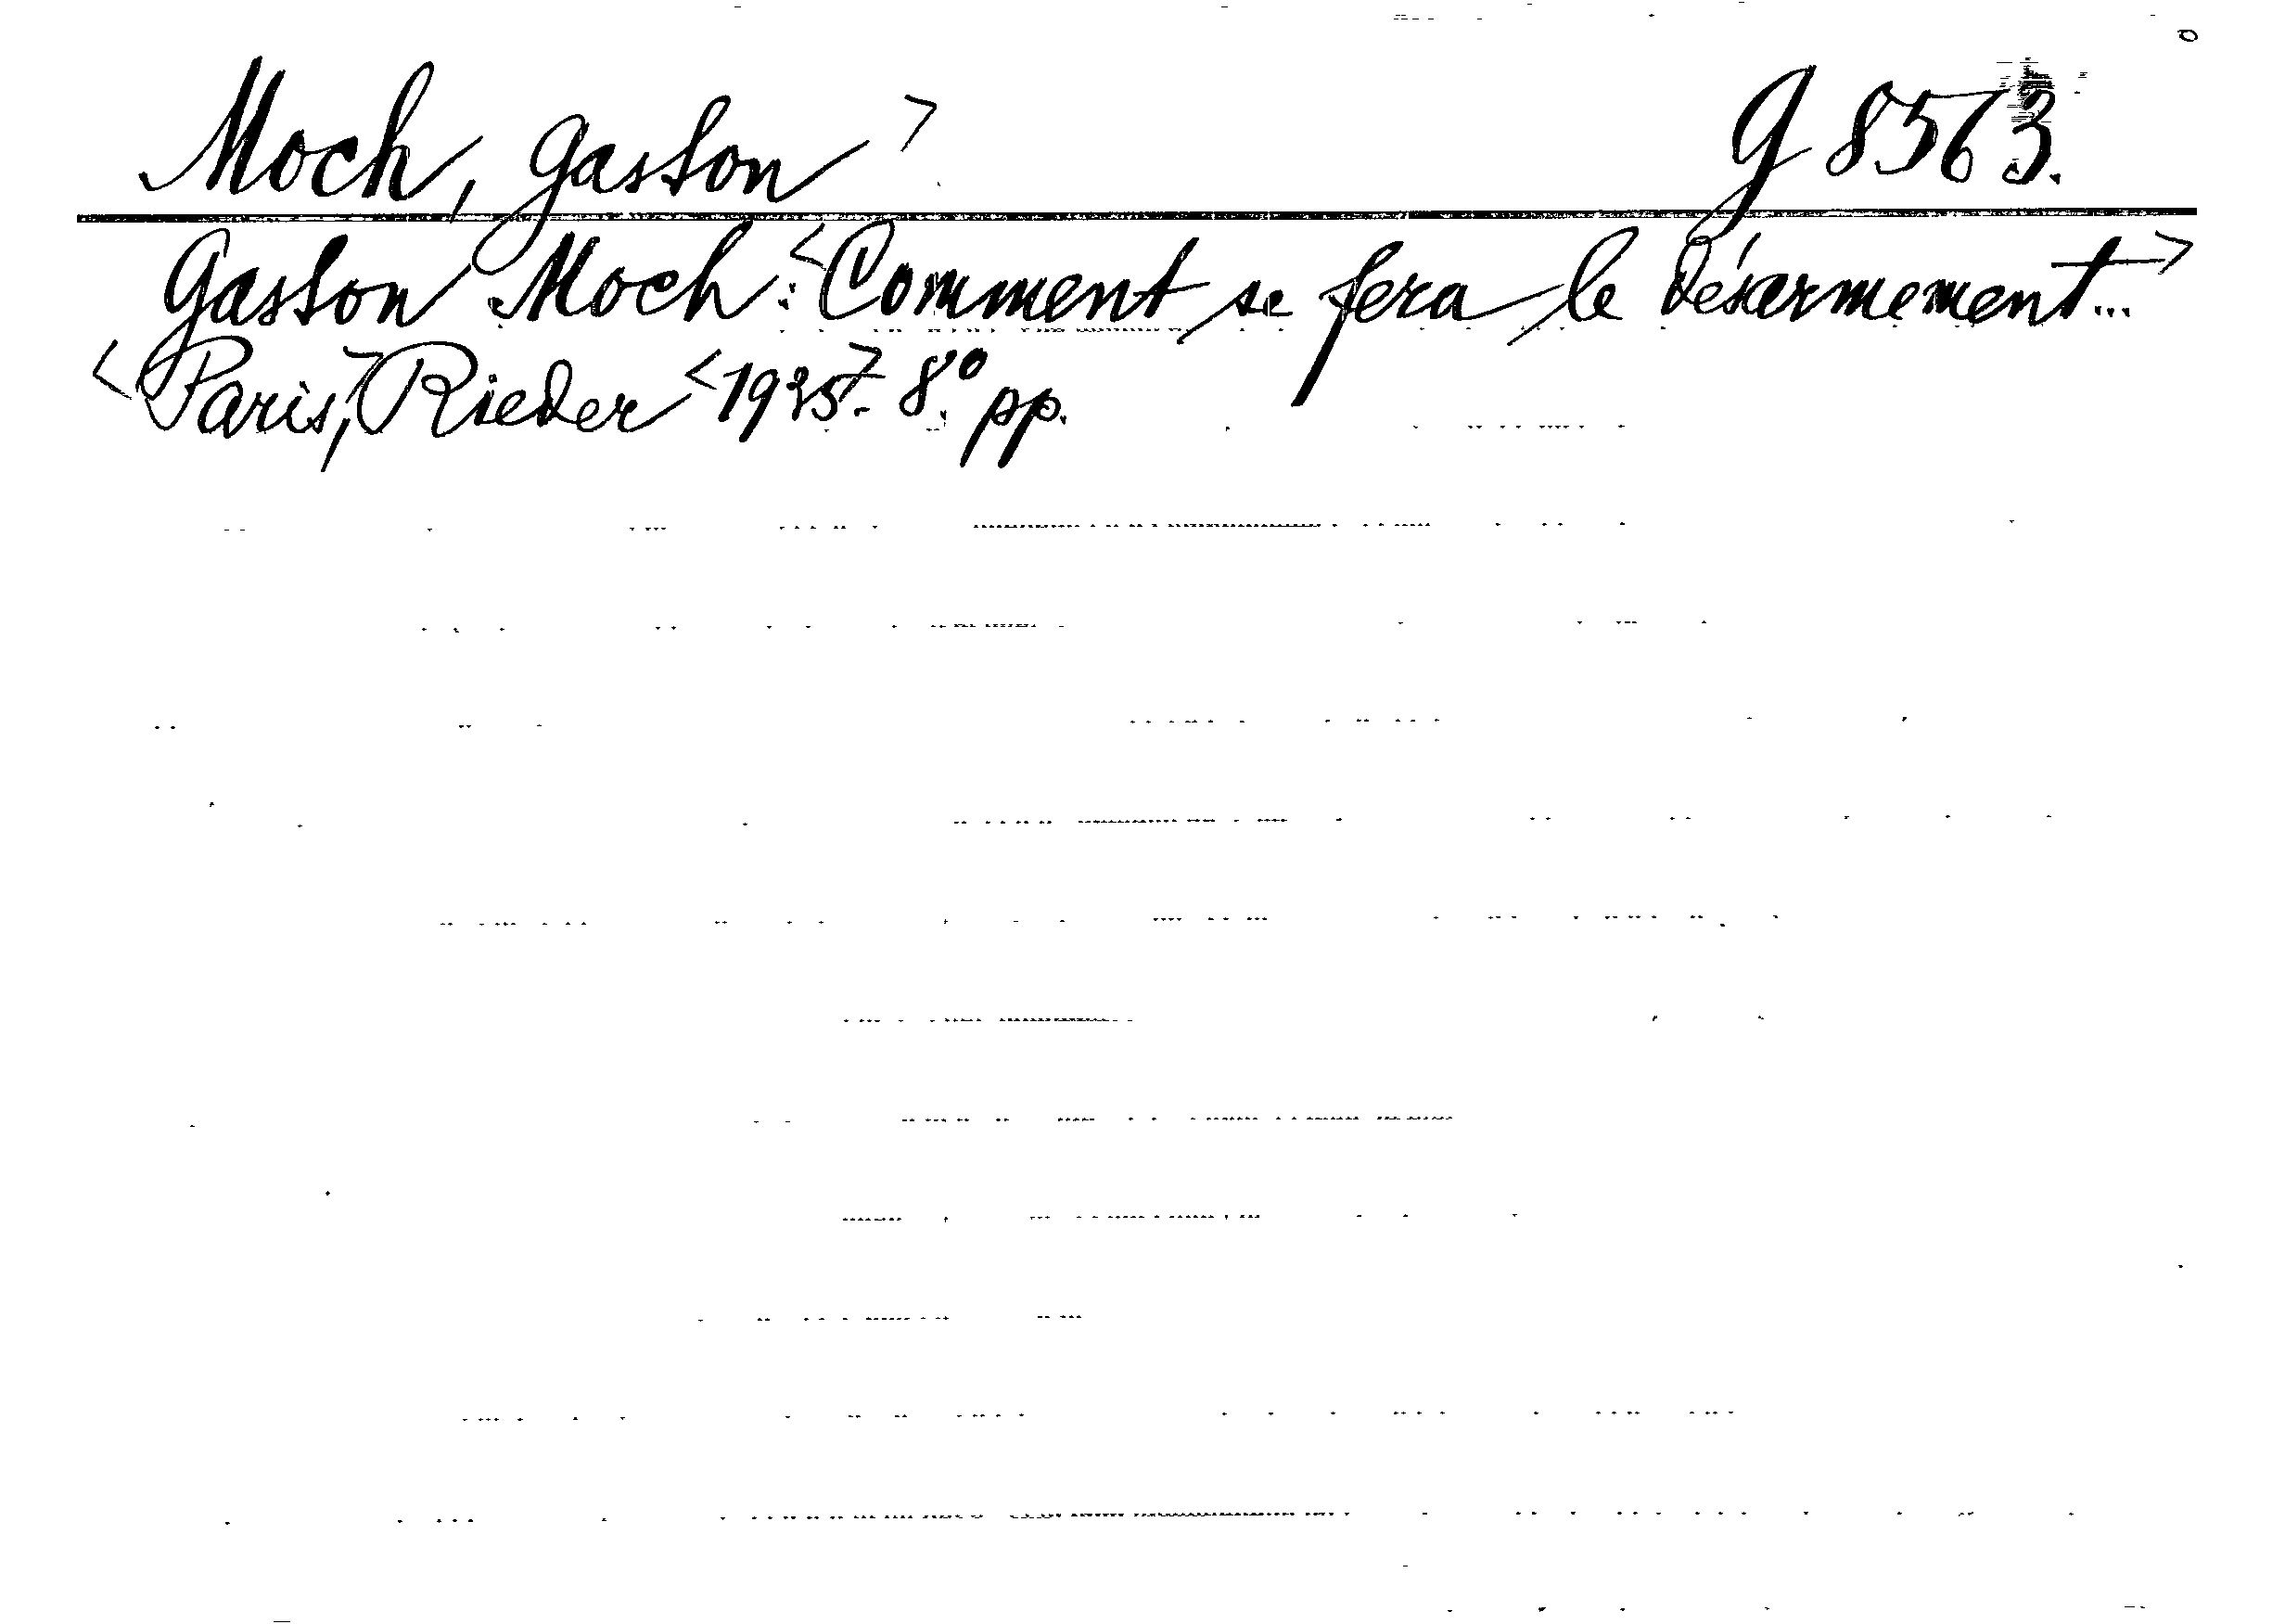 Moch, Gaston > G 8563.
Gaston Moch: <Comment se fera le désarmement...>
<Paris,> Rieder 8.° pp.